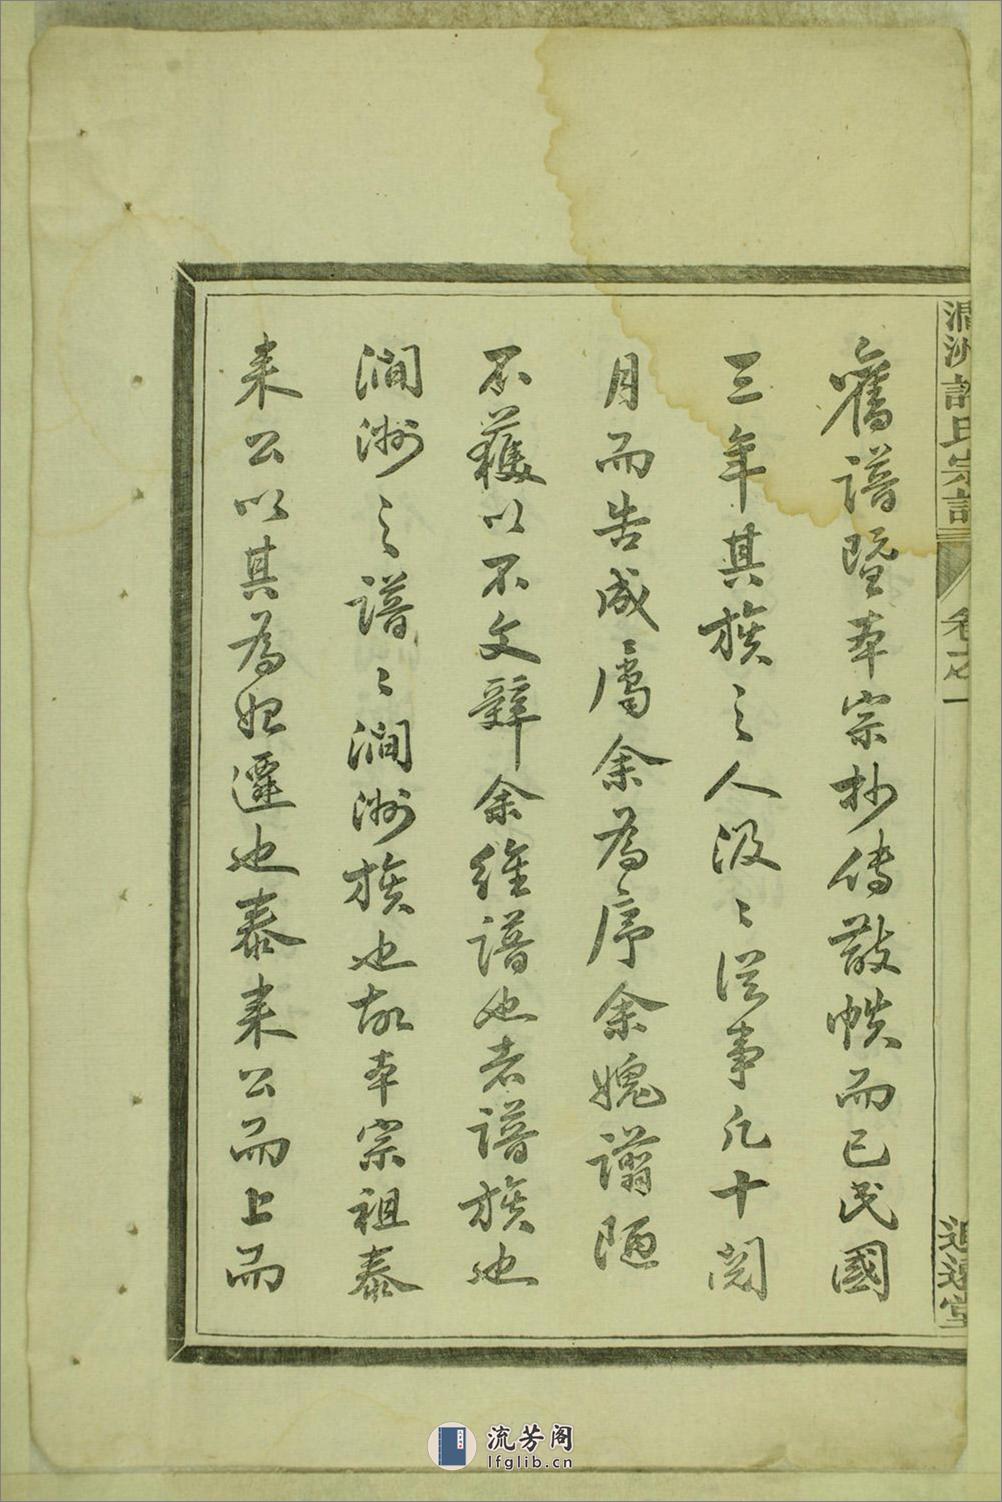 澗洲許氏宗譜 卷之一 追遠堂
舊譜暨本宗抄傳散帙而已民國
三年其族之人汲〻從事凡十閱
月而告成屬余為序余媿譾陋
不獲以不文辭余維譜也者譜族也
澗洲之譜〻澗洲族也故本宗祖泰
来公以其為始遷也泰来公而上而
流芳阁
lfglib.cn